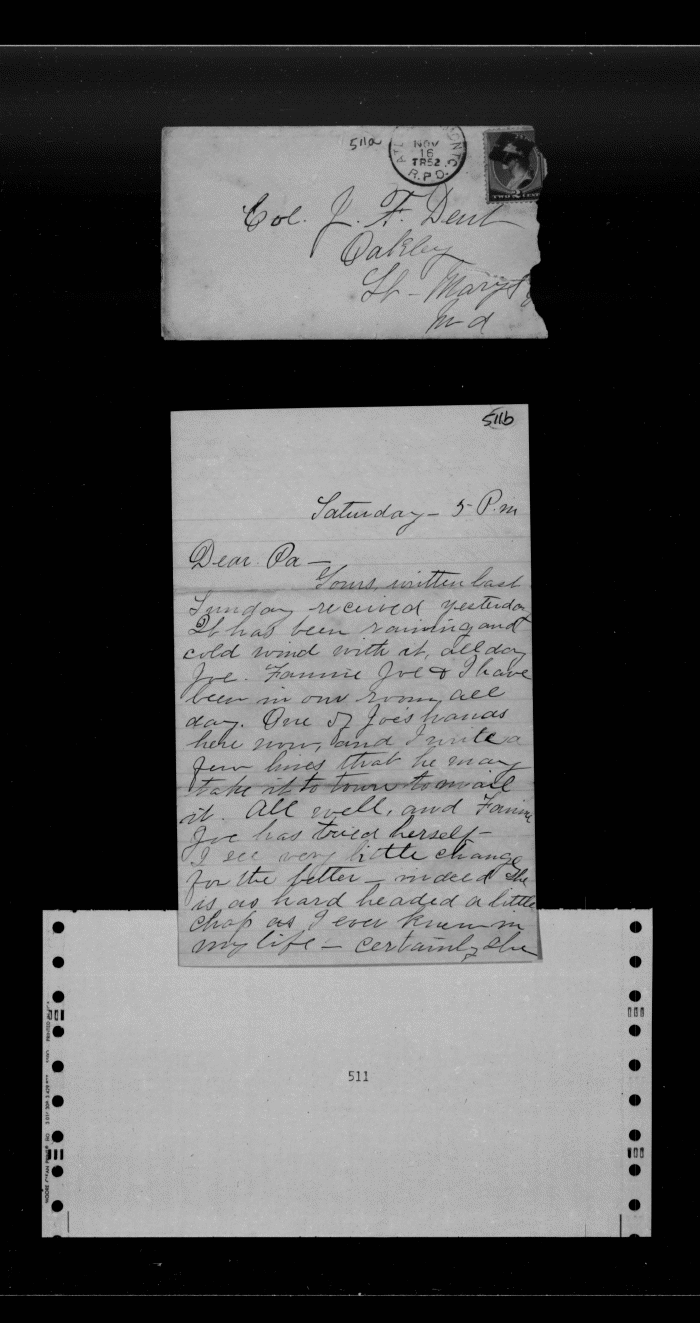 511a
NOV
16
TR52
R.P.O.
TWO
Col. J. F. Dent
Oakley
St - Mary's
Md
511b
Saturday - 5 P.m
Dear Pa -
Yours, written last
Sunday received yesterday
It has been raining and
cold wind with it, all day
Joe. Fannie Joe & I have
been in our room all
day. One of Joe's hands
here now, and I write a
few lines that he may
take it to town to mail
it. All well, and Fannie
Joe has tried herself -
I see very little change
for the better - indeed she
is as hard headed a little
chap as I ever knew in
my life - certainly she
511